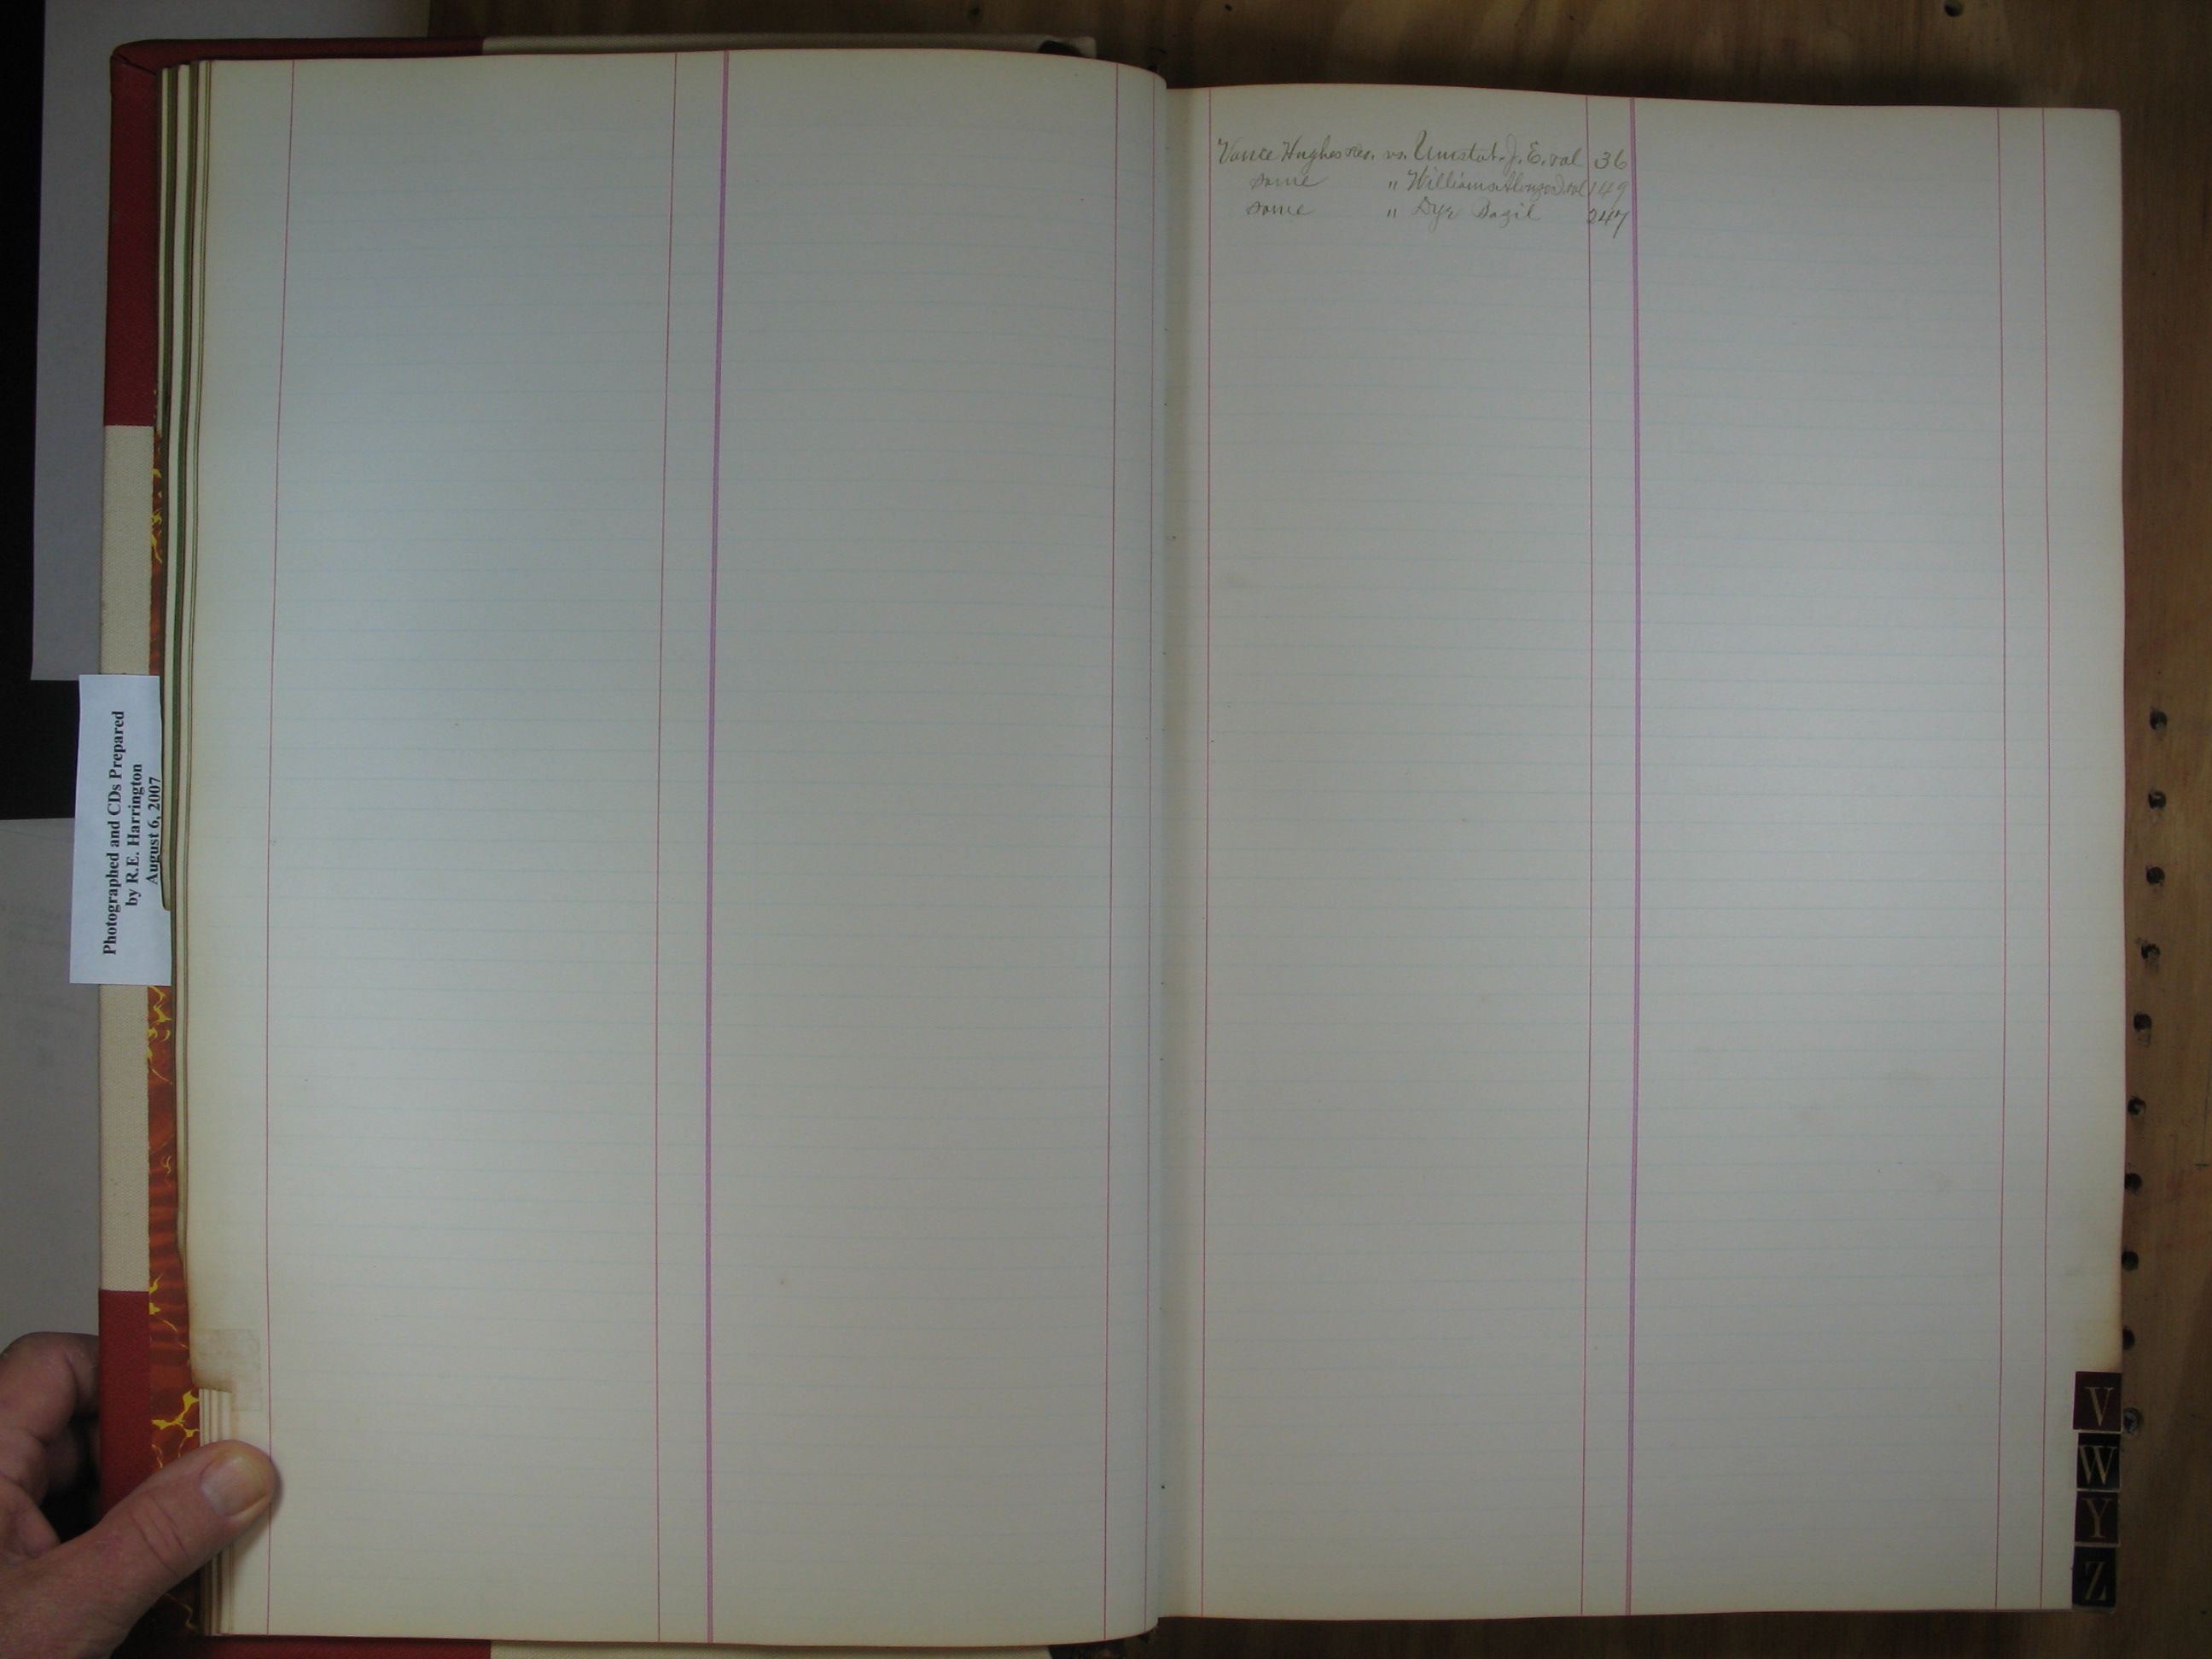 Photographed and CDs Prepared
by R.E. Harrington
August 6, 2007
Vance Hughes vs. Umstot J. E. 36
same " Williams Alonzo 149
same " Dye Bazil 247
V
W
Y
Z